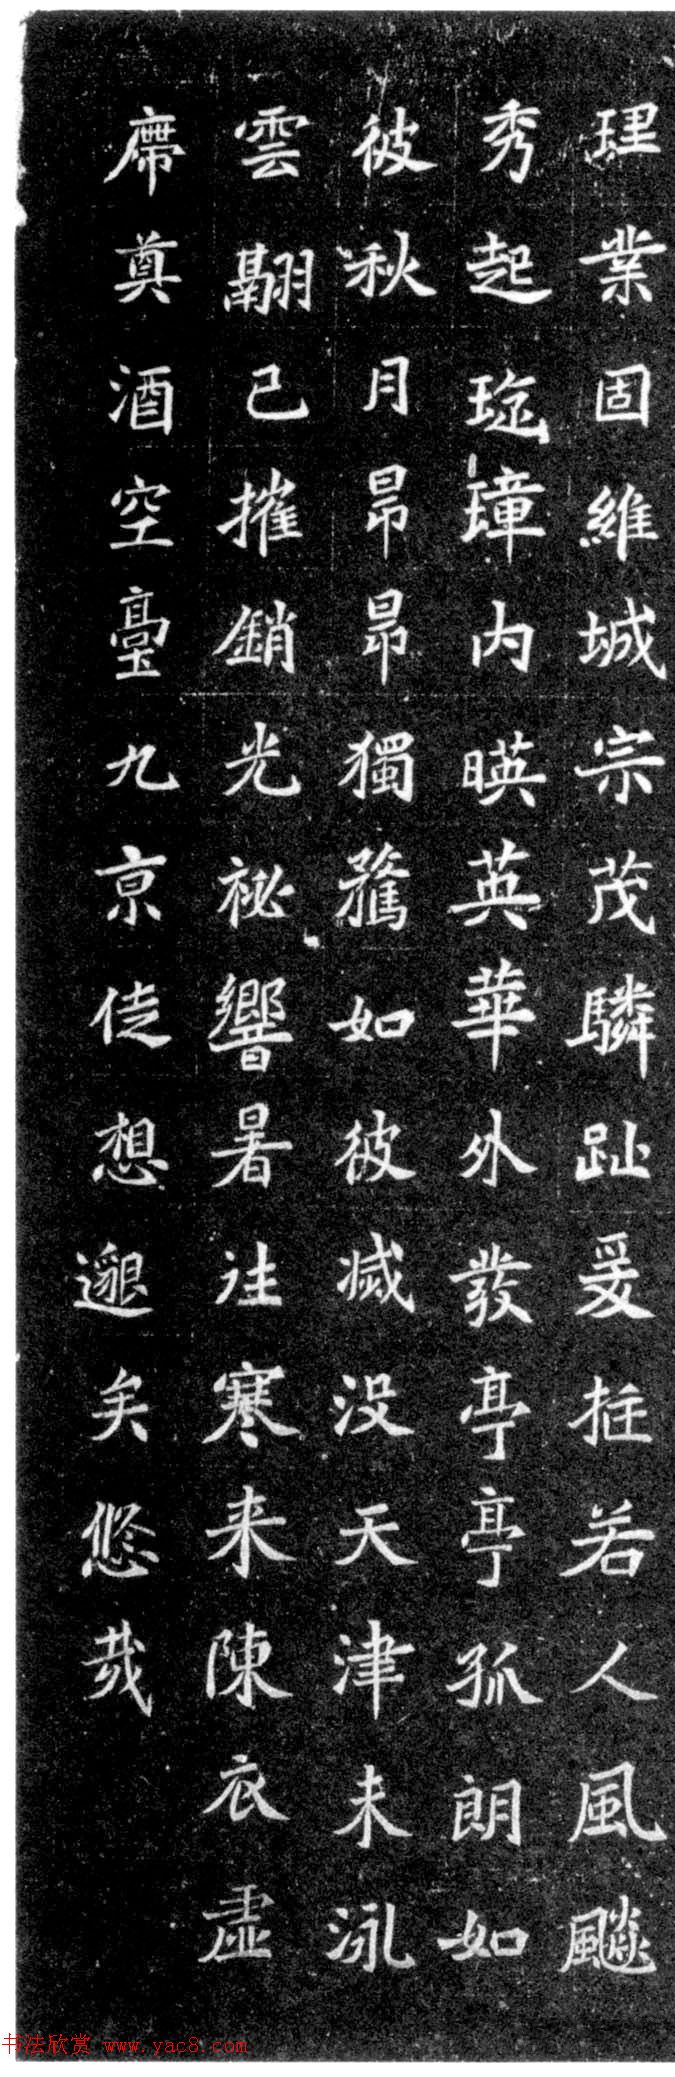 理業固維城宗茂驎趾爰挺若人風飈
秀起珪璋内暎英華外發亭亭孤朗如
彼秋月昂昂獨騖如彼滅没天津未泳
雲翮已摧銷光祕響暑往寒来陳衣虚
席奠酒空臺九京徒想邈矣悠哉
书法欣赏 www.yac8.com